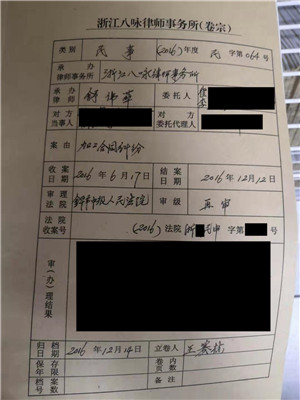 浙江八咏律师事务所(卷宗)
类别 民事 (2016)年度 民 字第064号
承办律师事务所 浙江八咏律师事务所
承办律师 委托人
对方当事人 对方委托代理人
案由 加工合同纠纷
收案日期 2016年6月17日 结案日期 2016年12月12日
审理法院 人民法院 审级 再审
法院收案号 (2016)法院 浙 申 字第 号
审(办)理结果
归档日期 2016年12月14日 立卷人
保存年限 卷内页数
档案号数 备注